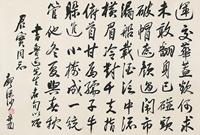 運交華蓋欲何求
未敢翻身已碰頭
破帽遮顏過鬧市
漏船載酒泛中流
橫眉冷對千夫指
俯首甘為孺子牛
躲進小樓成一統
管他冬夏與春秋
書魯迅先生名句以
同志